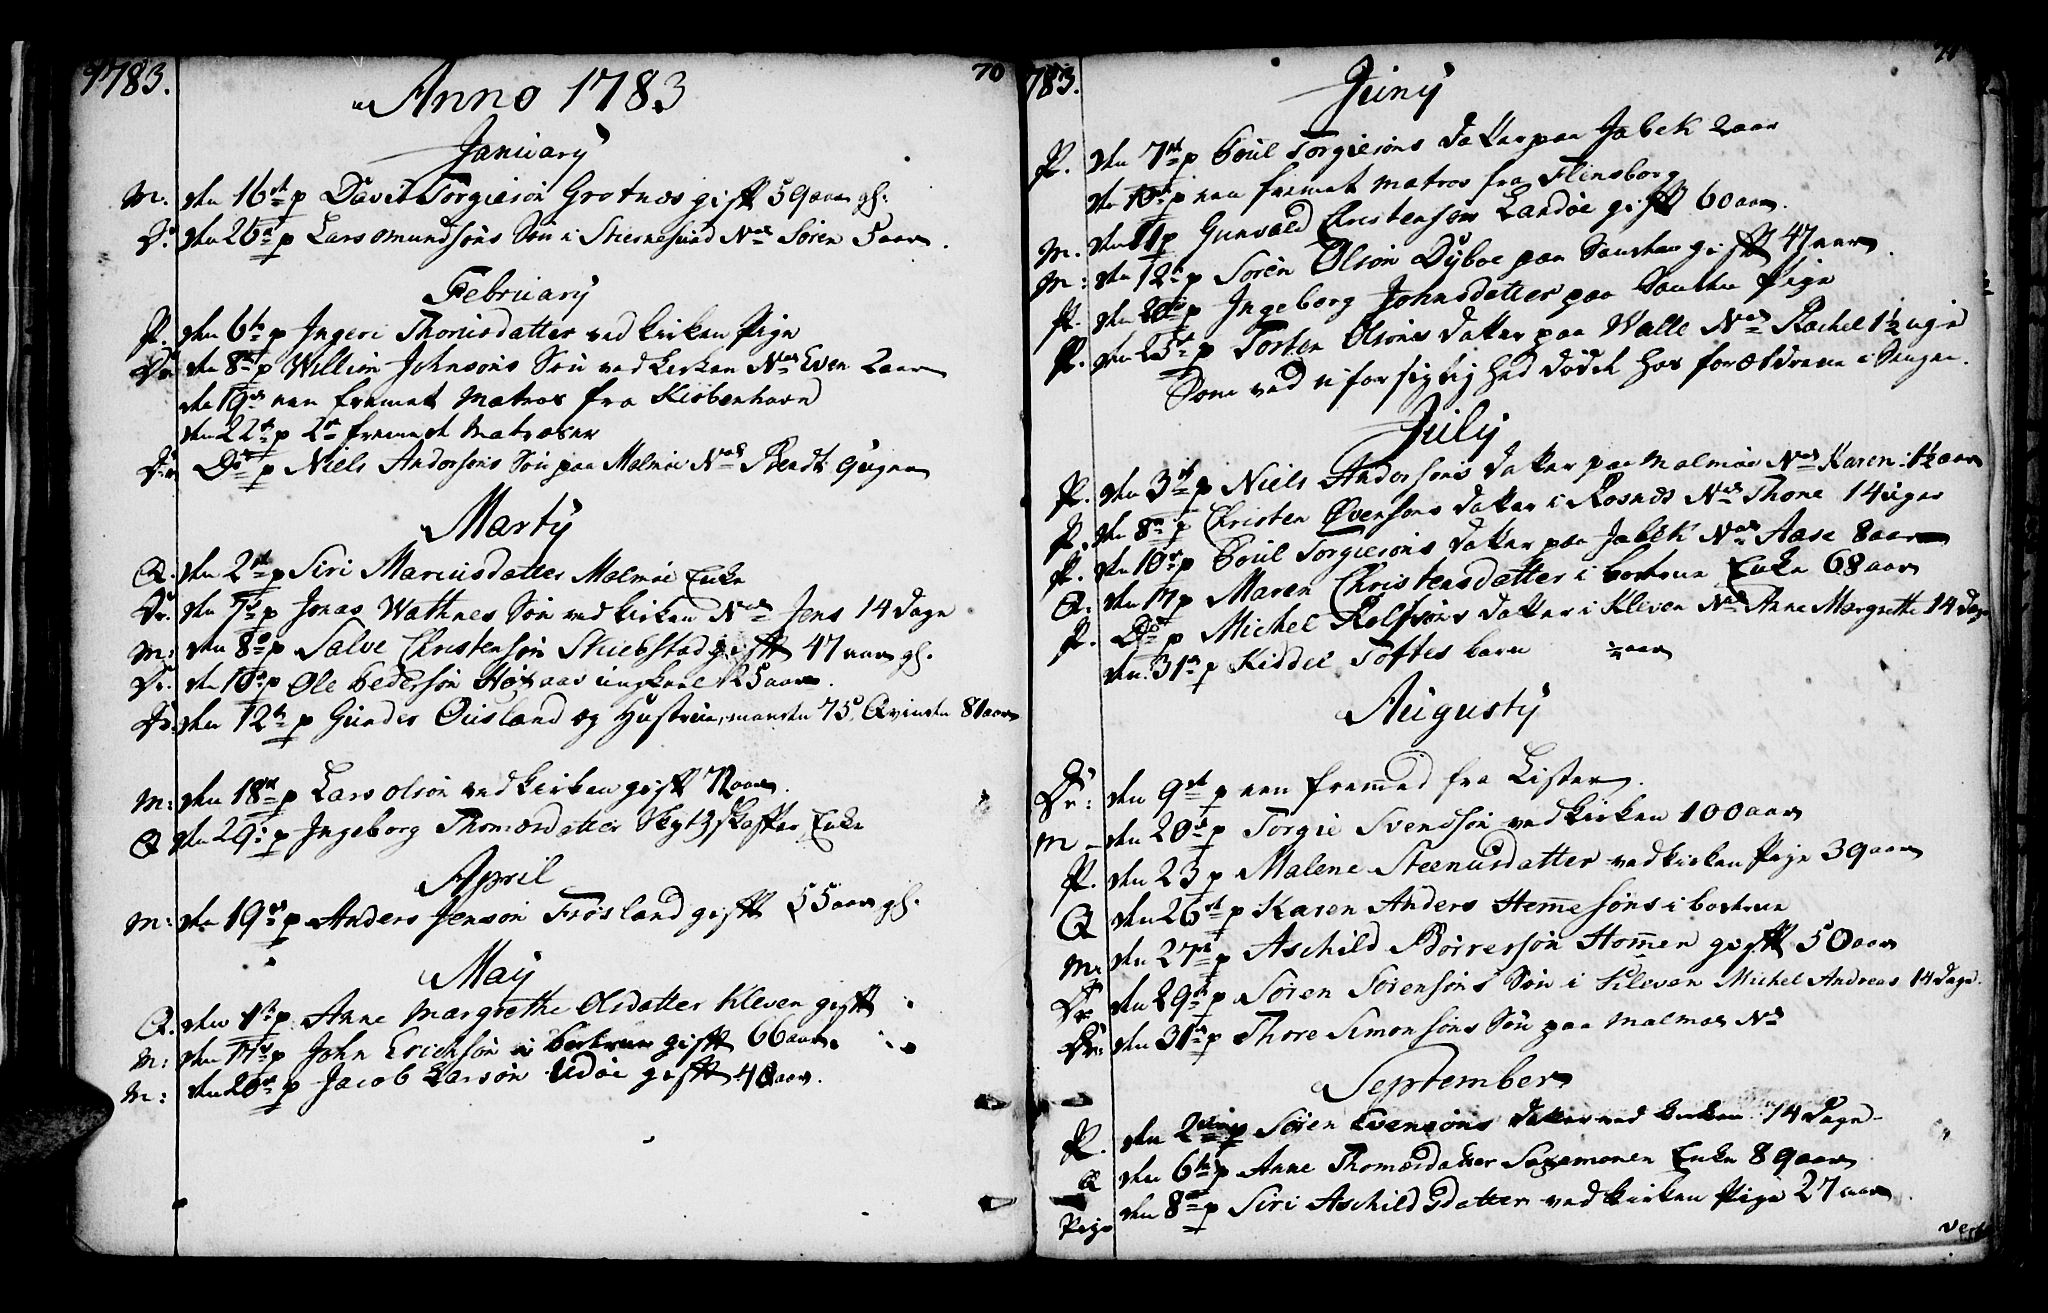 1783.
Anno 1783
70
January
M: den 16de p David Torgiesøn Grotnæs gift 59 aar gl.
Dr. den 26de p Lars Omundsøns Søn i Stiernesund Nal Søren 5 aar.
February
P. den 6te p Ingeri Thomsdatter ved kirken Pige
Dr. den 8de p Willum Johnsøns Søn ved kirken Nal Even 2 aar
den 19de een fremet Matros fra Kiøbenhavn
den 22de p 2de fremet Matroser
Dr. Do p Niels Andersøns Søn paa Malmøe Nal Bendt 9 uger
Marty
Q. den 2de p Siri Mariusdatter Malmøe Enke
Dr. den 7de p Jonas Wathnes Søn ved kirken Nal Jens 14 dage
M: den 8de p Salve Christensøn Skiebstad gift 47 aar gl.
Dr. den 10de p Ole Pedersøn ungkarl 25 aar.
den 12te p Gunder Ousland og Hustrue, manden 75, Qvinden 81 aar
M: den 18de p Lars Olsøn ved kirken gift 72 aar.
Q den 29: p Ingeborg Thomæsdatter Enke
April
M: den 19de p Anders Jensøn Frøsland gift 55 aar gl.
May
Q. den 1ste p Anne Margrethe Olsdatter Kleven gift
M: den 17de p John Erichsøn i gift 66 aar.
M: den 20de p Jacob Larsøn Udøe gift 40 aar.
783.
71
Juny
P. den 7de p Poul Torgiesøns datter paa Jabek 2 aar
den 10de p een fremet matros fra Flensborg
M. den 11 p Gunvald Christensøn Landøe gift 60 aar.
M: den 12te p Søren Olsøn Dyboe paa Sanden gift 47 aar.
P. den 20de p Ingeborg Johnsdatter paa Sanden Pige
P. den 25de p Torben Olsøns datter paa Walle Nal Rachel 1½ uge
Som ved uforsigtighed døde hos forældrene i Sengen.
July
P. den 3de p Niels Andersøns datter paa Malmøe Nal Karen 1½ aar
P. den 8de p Christen Evensøns datter i Rosnes Nal Thone 14 uger
P. den 10de p Poul Torgiesøns datter paa Jabek Nal Aase 8 aar
Q: den 17 p Maren Christensdatter i Enke 68 aar
P. Do p Michel Rolfsøns datter i Kleven Nal Anne Margrethe 14 dage
den 31te p Kiddel Toftes barn ½ aar
Augusty
Dr: den 9de p een fremmed fra Lister.
M den 20de p Torgie Svensøn ved kirken 100 aar
P. den 23 p Malene Steenusdatter ved kirken Pige 39 aar
Q den 26de p Karen Anders Hemmesøns i
M: den 27de p Aschild Børresøn Hommen gift 50 aar
Dr den 29de p Søren Sørensøns Søn i Kleven Michel Andreas 14 dage.
Dr: den 31te p Thore Simonsøns Søn paa Malmøe Nal
September
P. den 2den p Søren Evensøns datter ved kirken 14 dage
Q den 6te p Anne Thomæsdatter Enke 89 aar
Pige den 8de p Siri Aschildsdatter ved kirken Pige 27 aar.